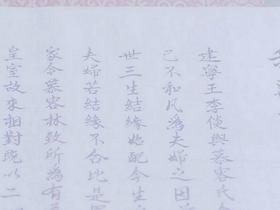 建寧王李倓與慕容氏
已不和凡為夫婦之因前
世三生結緣始配今生
夫婦若結緣不合比是
家令慕容林致所為有
皇室故來相對既以二